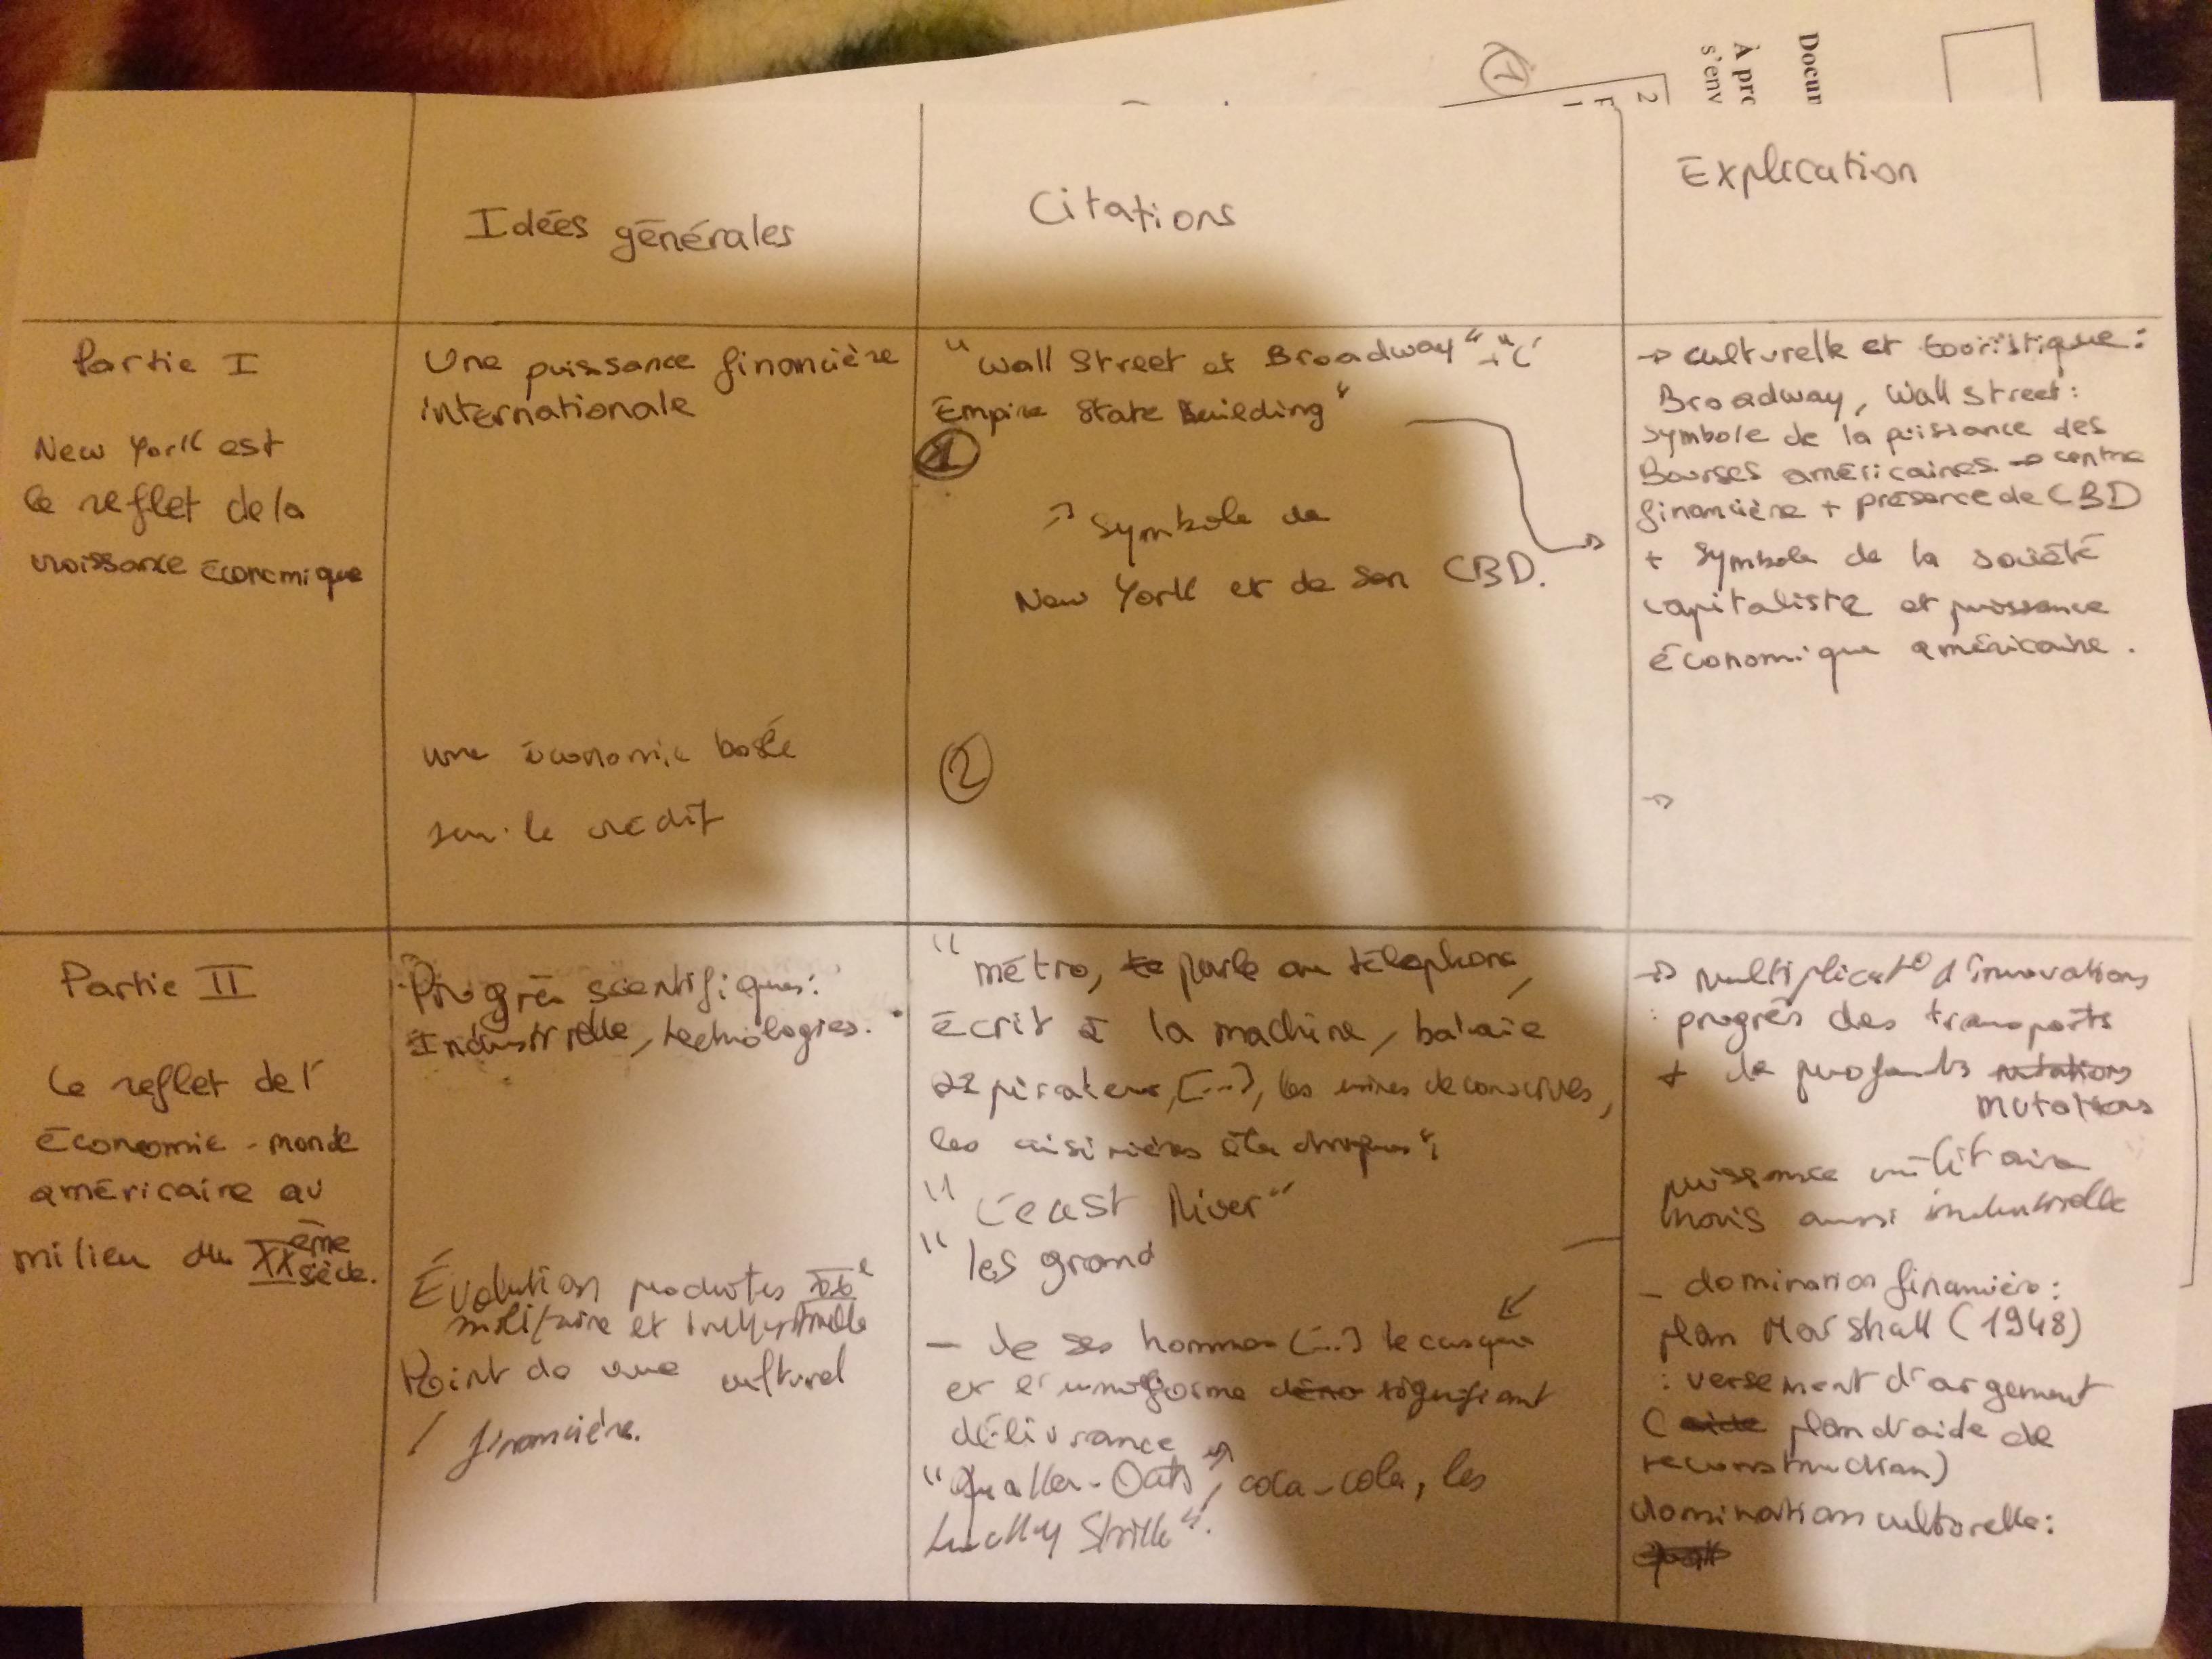 Docum
À pro
s'env
1
2
F
1
Idées générales
Citations
Explication
Partie I
New York est
le reflet de la
croissance économique
Une puissance financière
internationale
une économie basée
sur le crédit
"Wall Street et Broadway" + "L'
Empire State Building"
1
→ Symbole de
New York et de son CBD.
2
→ culturelle et touristique :
Broadway, Wall Street :
Symbole de la puissance des
Bourses américaines → centre
financière + présence de CBD
+ Symbole de la société
capitaliste et puissance
économique américaine.
→
Partie II
Le reflet de l'
économie-monde
américaine au
milieu du XXème
siècle.
Progrès scientifiques :
Industrielle, technologies.
Évolution
militaire et industrielle
Point de vue culturel
/ financière.
"métro, te parle au téléphone,
écrit à la machine, balaie
aspirateur, [...], les usines de conserves,
les cuisinières
"L'east River"
"les grand
- de ses hommes (...) le casque
et l'uniforme signifiant
délivrance
"Quaker-Oats", coca-cola, les
Lucky Strike".
→ Multiplicat° d'innovations
: progrès des transports
+ de profonds mutations
mutations
puissance militaire
mais aussi industrielle
- domination financière :
plan Marshall (1948)
: versement d'argement
(aide plan d'aide de
reconstruction)
domination culturelle :